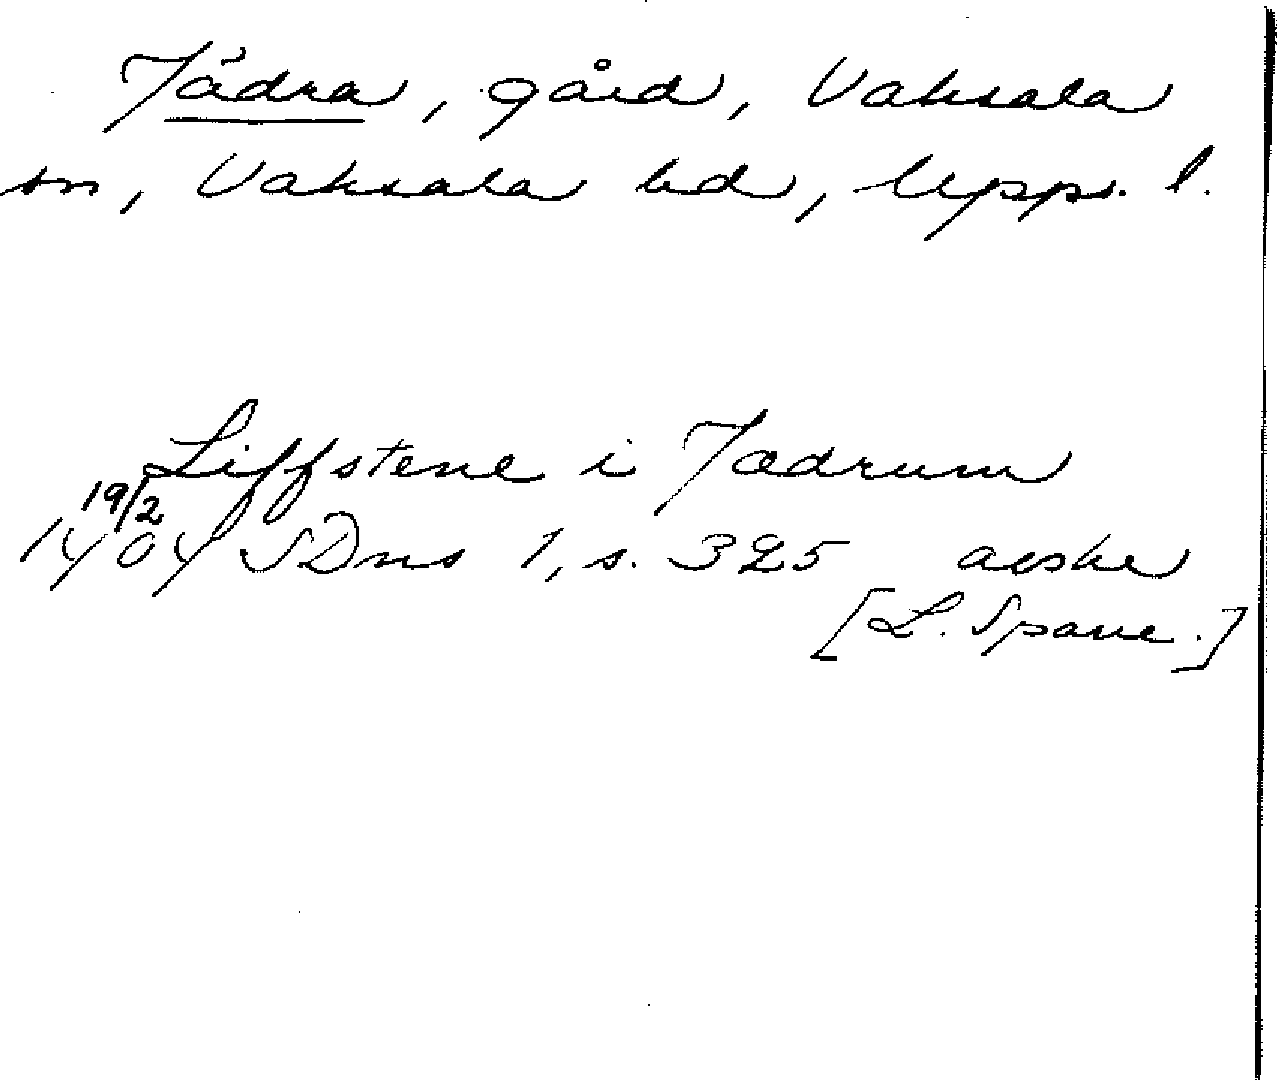 Jädra, gård, Vaksala
sn, Vaksala hd, Upps. l.
Liffstene i Jædrum
19/2
1404 SDns 1, s. 325 avskr
[L. Sparre.]